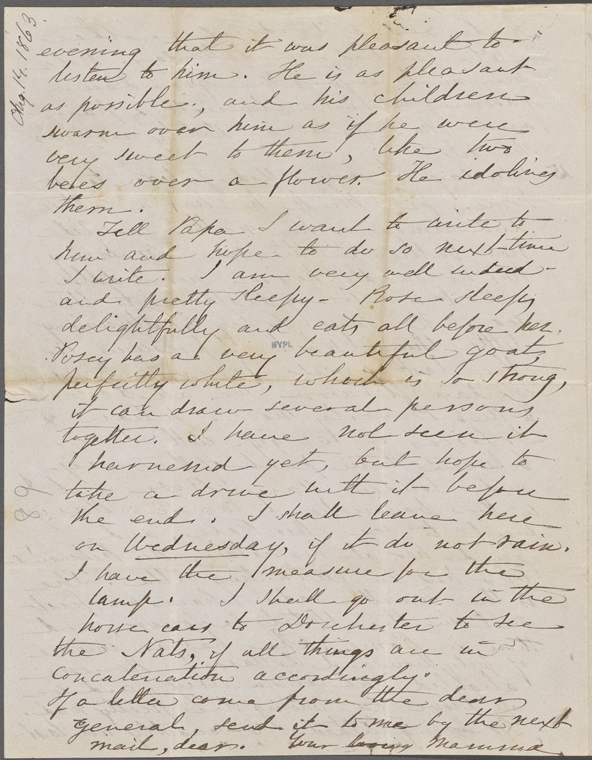 Aug. 14. 1863
evening that it was pleasant to
listen to him. He is as pleasant
as possible, and his children
swarm over him as if he were
very sweet to them, like two
bees over a flower. He idolizes
them.
Tell Papa I want to write to
him and hope to do so next time
I write. I am very well indeed -
and pretty sleepy - Rose sleeps
delightfully and eats all before her.
Posey has a very beautiful goat,
perfectly white, which is so strong,
it can draw several persons
together. I have not seen it
harnessed yet, but hope to
take a drive with it before
the end. I shall leave here
on Wednesday, if it do not rain.
I have the measure for the
lamp. I shall go out in the
horse cars to Dorchester to see
the Nats, if all things are in
concatenation accordingly.
If a letter come from the dear
general, send it to me by the next
mail, dear. Your loving Mamma
NYPL
89